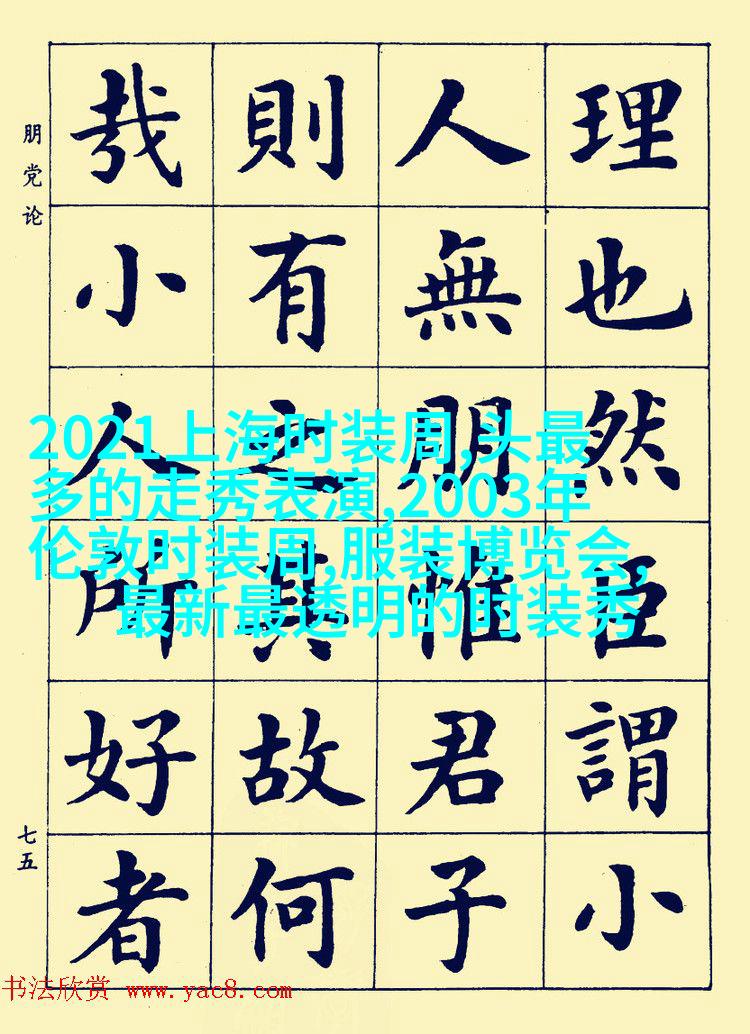 理也然臣謂小
人無朋惟君子
則有之其故何
哉小人所好者
朋党论
七五
2021上海时装周,头最
多的走秀表演,2003年
伦敦时装周,服装博览会,
最新最透明的时装秀
书法欣赏 www.yac8.com